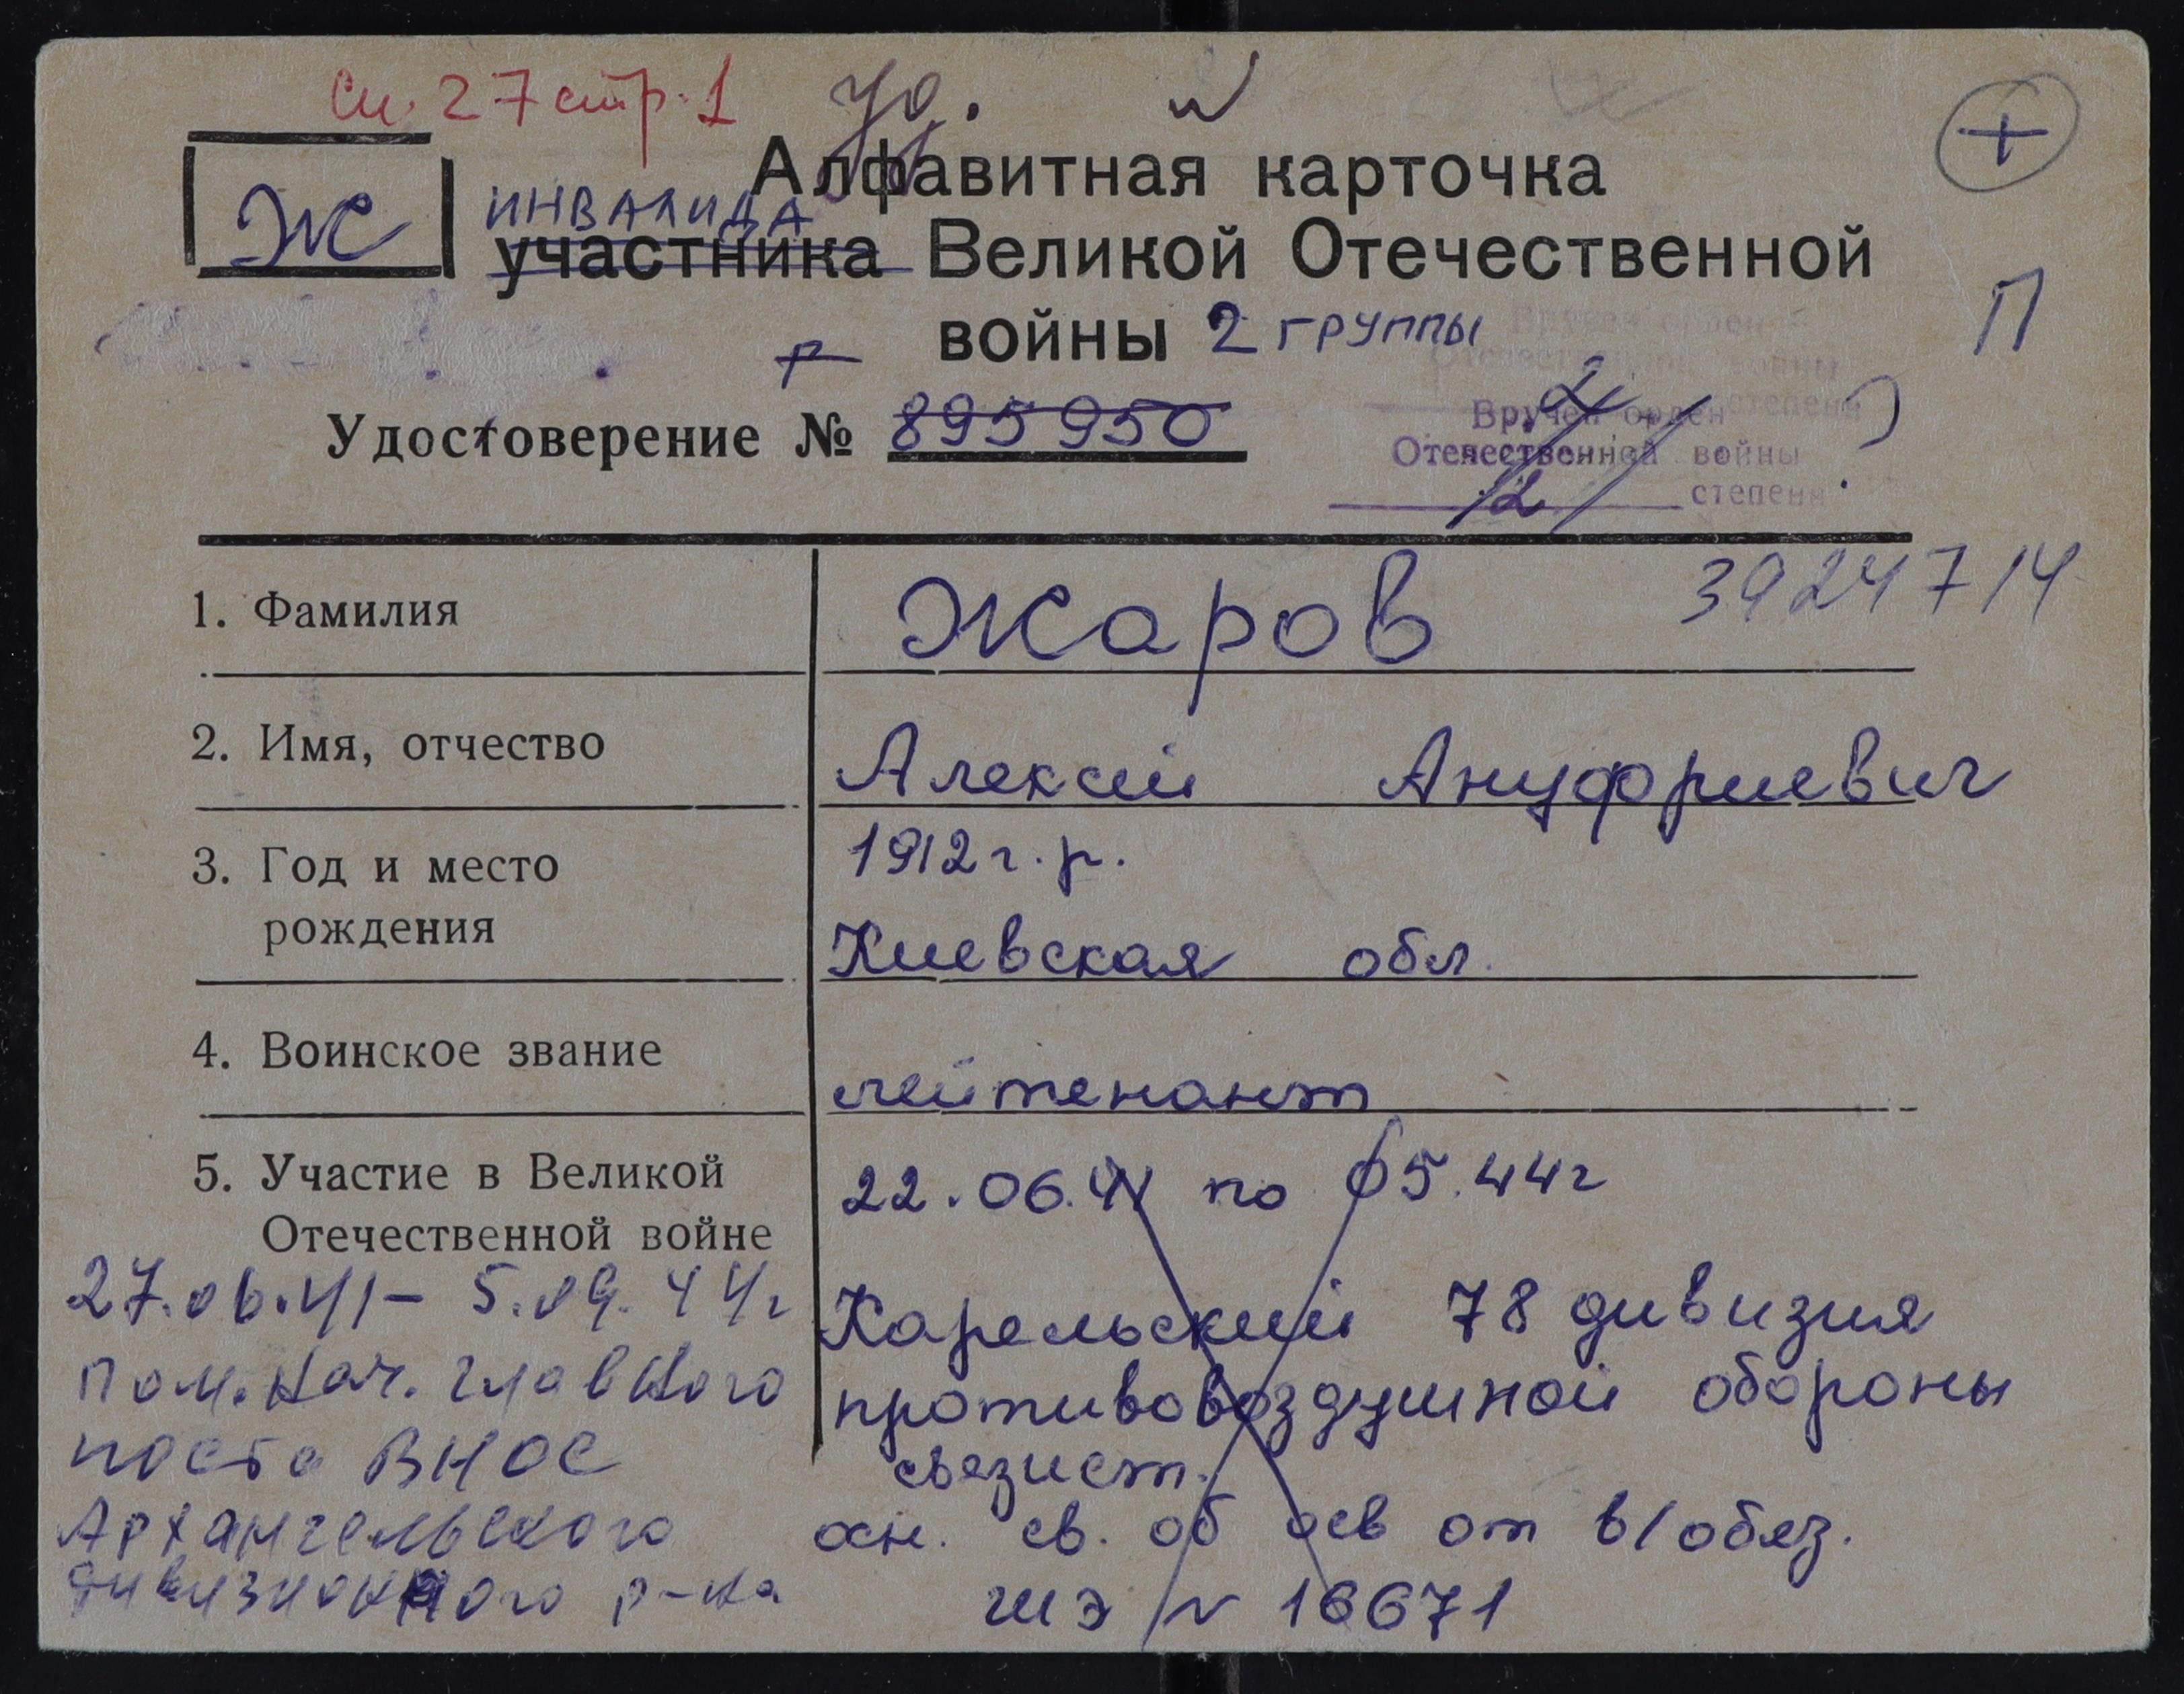 сп. 27 стр. 1
Ж
Алфавитная карточка
ИНВАЛИДА
участника Великой Отечественной
войны 2 группы
П
Удостоверение № 895950
Вручен орден
Отечественной войны
2 степени
1. Фамилия
Жаров
3924714
2. Имя, отчество
Алексей Ануфриевич
3. Год и место
рождения
1912 г.р.
Киевская обл.
4. Воинское звание
лейтенант
5. Участие в Великой
Отечественной войне
22.06.41 по 05.44г
Карельский 78 дивизия
противовоздушной обороны
связист.
осн. св. об осв от в/обяз.
ГШЭ № 16671
27.06.41 – 5.09.44г
пом. нач. главного
поста ВНОС
Архангельского
дивизионного р-на